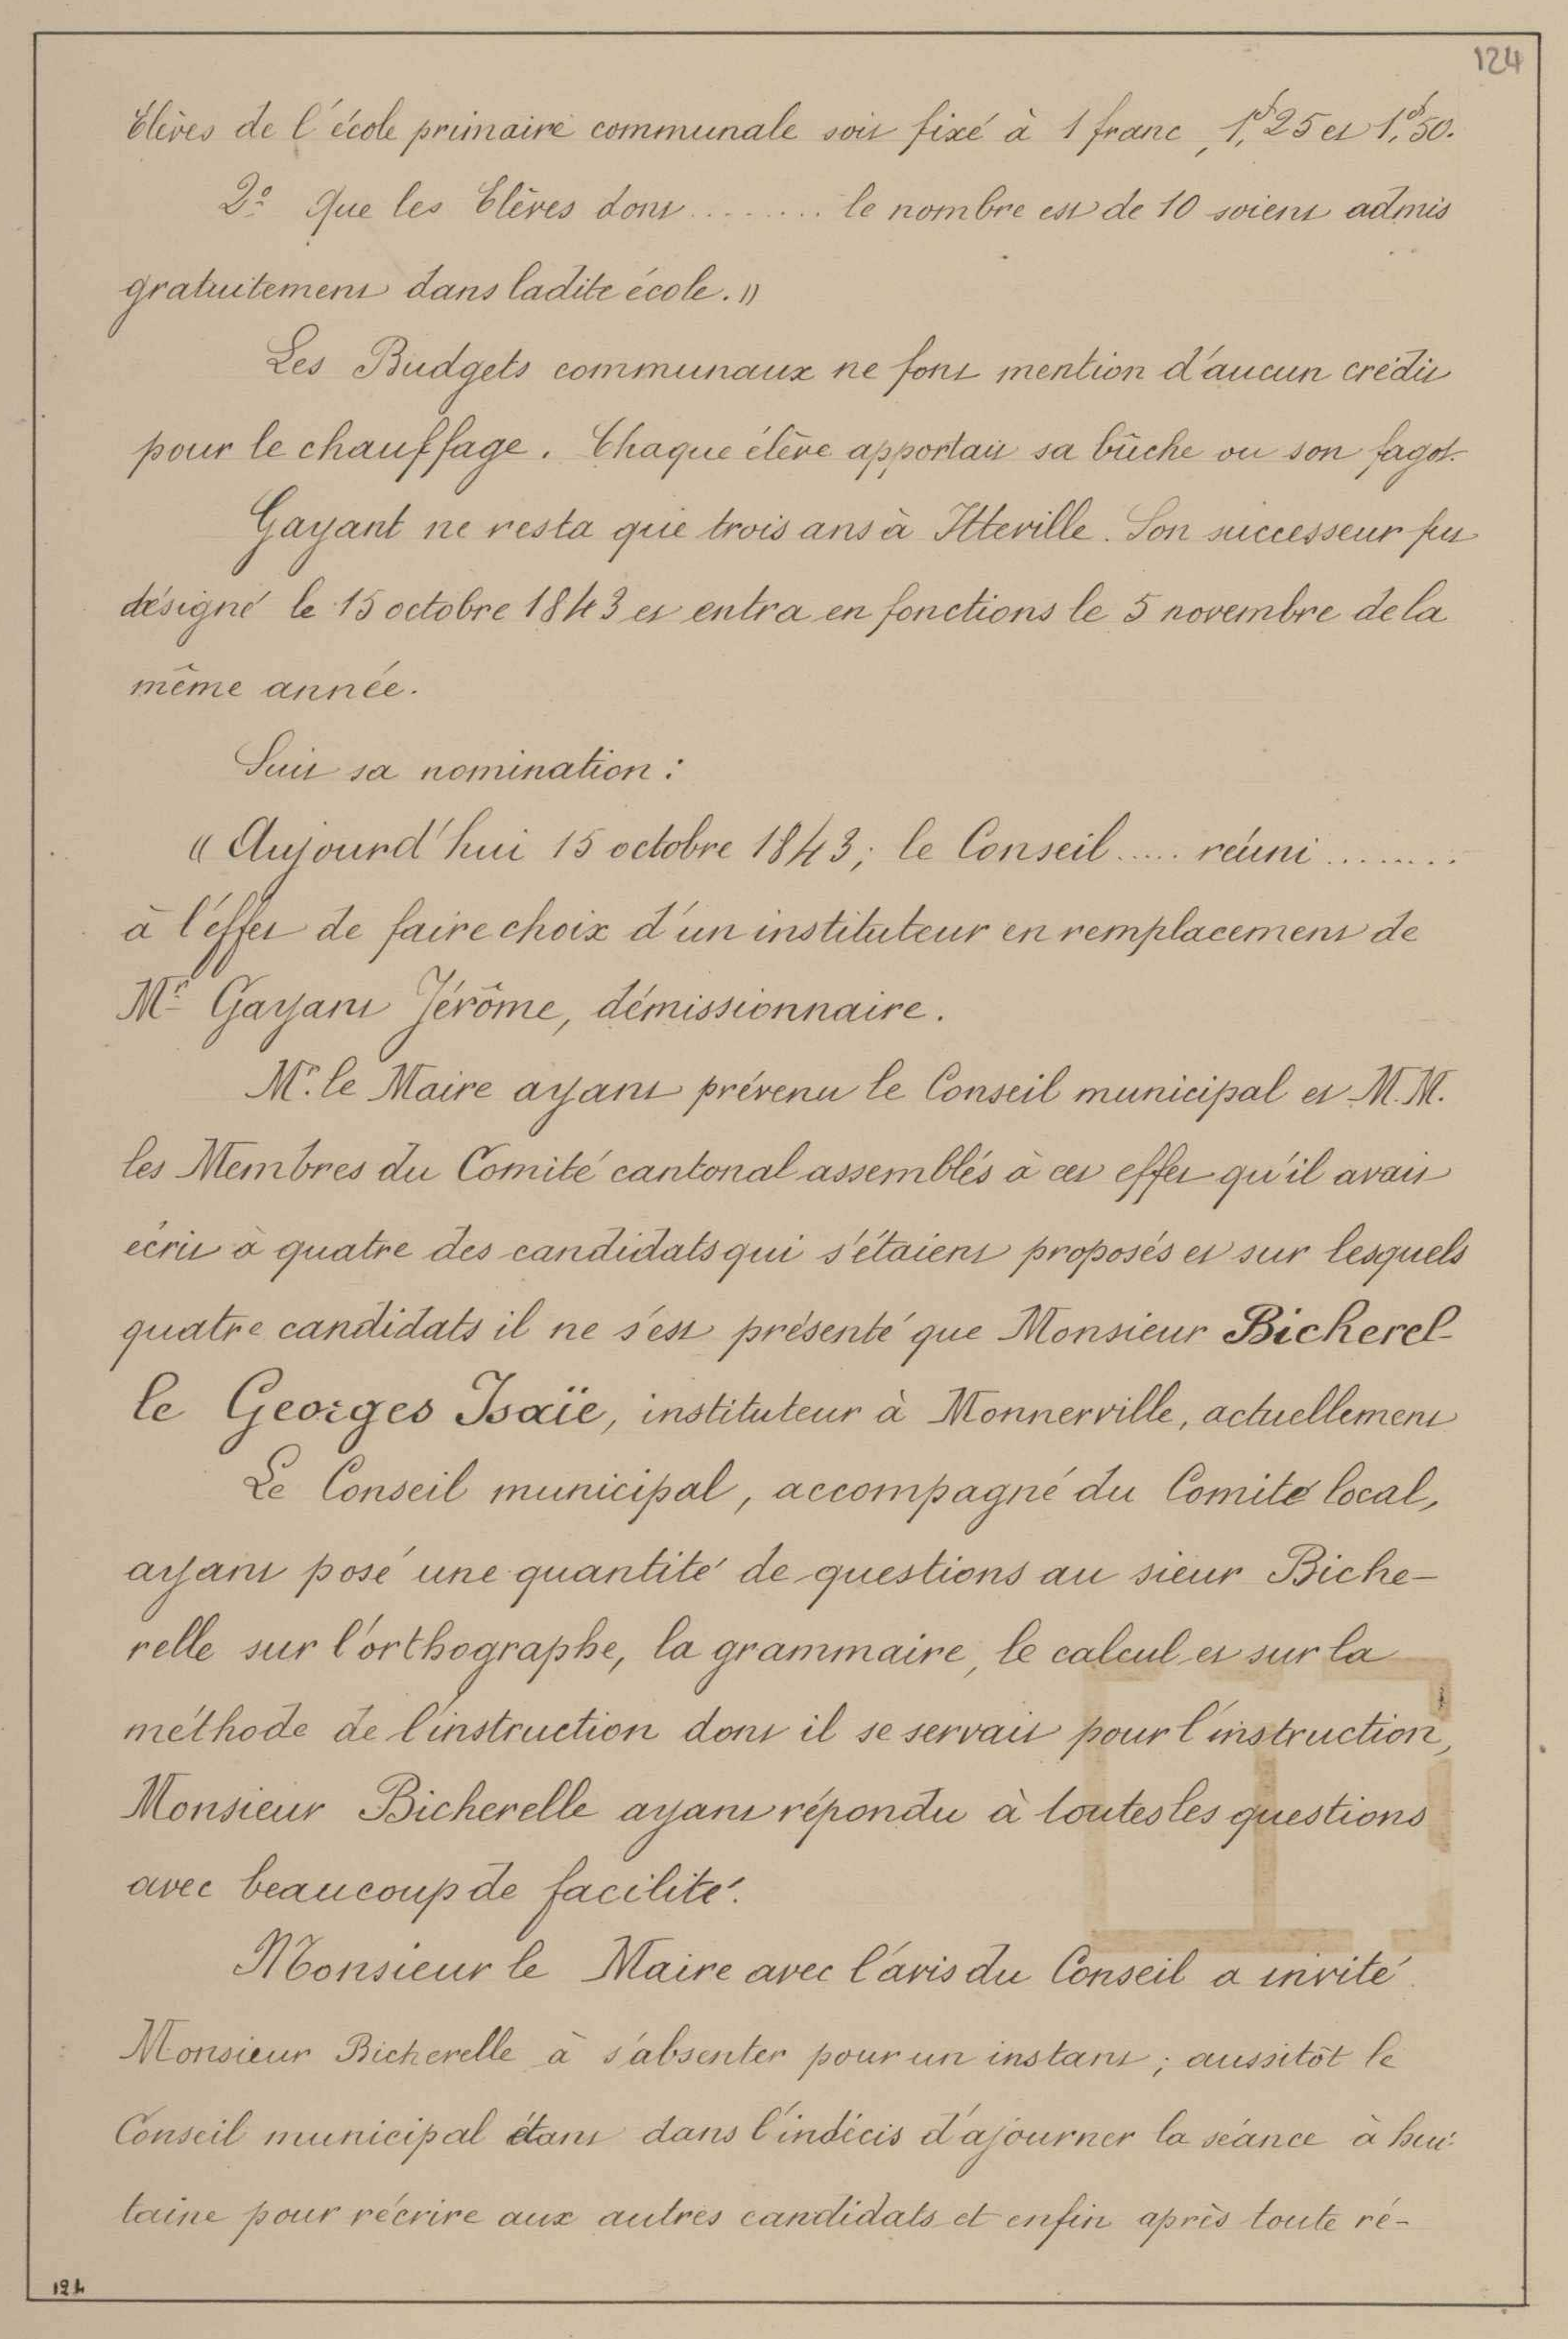 124
Elèves de l'école primaire communale soit fixé à 1 franc, 1,f 25 et 1,f 50.
2º Que les Elèves dont ........ le nombre est de 10 soient admis
gratuitement dans ladite école. »
Les Budgets communaux ne font mention d'aucun crédit
pour le chauffage. Chaque élève apportait sa bûche ou son fagot.
Gayant ne resta que trois ans à Itteville. Son successeur fut
désigné le 15 octobre 1843 et entra en fonctions le 5 novembre de la
même année.
Suit sa nomination :
« Aujourd'hui 15 octobre 1843 ; le Conseil ..... réuni ........
à l'effet de faire choix d'un instituteur en remplacement de
Mr Gayant Jérôme, démissionnaire.
Mr. le Maire ayant prévenu le Conseil municipal et M.M.
les Membres du Comité cantonal assemblés à cet effet qu'il avait
écrit à quatre des candidats qui s'étaient proposés et sur lesquels
quatre candidats il ne s'est présenté que Monsieur Bicherel-
le Georges Isaïe, instituteur à Monnerville, actuellement
Le Conseil municipal, accompagné du Comité local,
ayant posé une quantité de questions au sieur Biche-
relle sur l'orthographe, la grammaire, le calcul et sur la
méthode de l'instruction dont il se servait pour l'instruction,
Monsieur Bicherelle ayant répondu à toutes les questions
avec beaucoup de facilité.
Monsieur le Maire avec l'avis du Conseil a invité
Monsieur Bicherelle à s'absenter pour un instant ; aussitôt le
Conseil municipal étant dans l'indécis d'ajourner la séance à hui-
taine pour récrire aux autres candidats et enfin après toute ré-
124